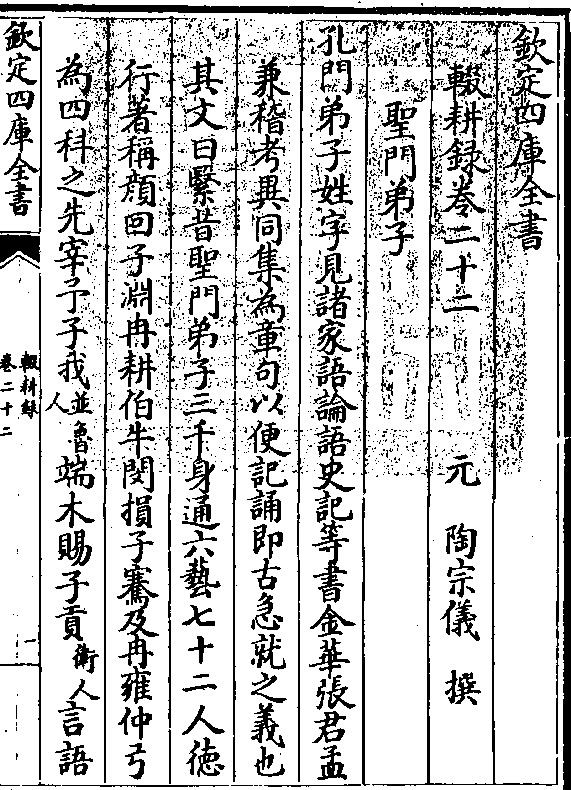 欽定四庫全書
輟耕録卷二十二 元 陶宗儀 撰
聖門弟子
孔門弟子姓字見諸家語論語史記等書金華張君孟
兼稽考異同集為章句以便記誦即古急就之義也
其文曰繄昔聖門弟子三千身通六藝七十二人徳
行著稱顔回子淵冉耕伯牛閔損子騫及冉雍仲弓
為四科之先宰予子我並魯人端木賜子貢衛人言語
欽定四庫全書
輟耕録
卷二十二
一